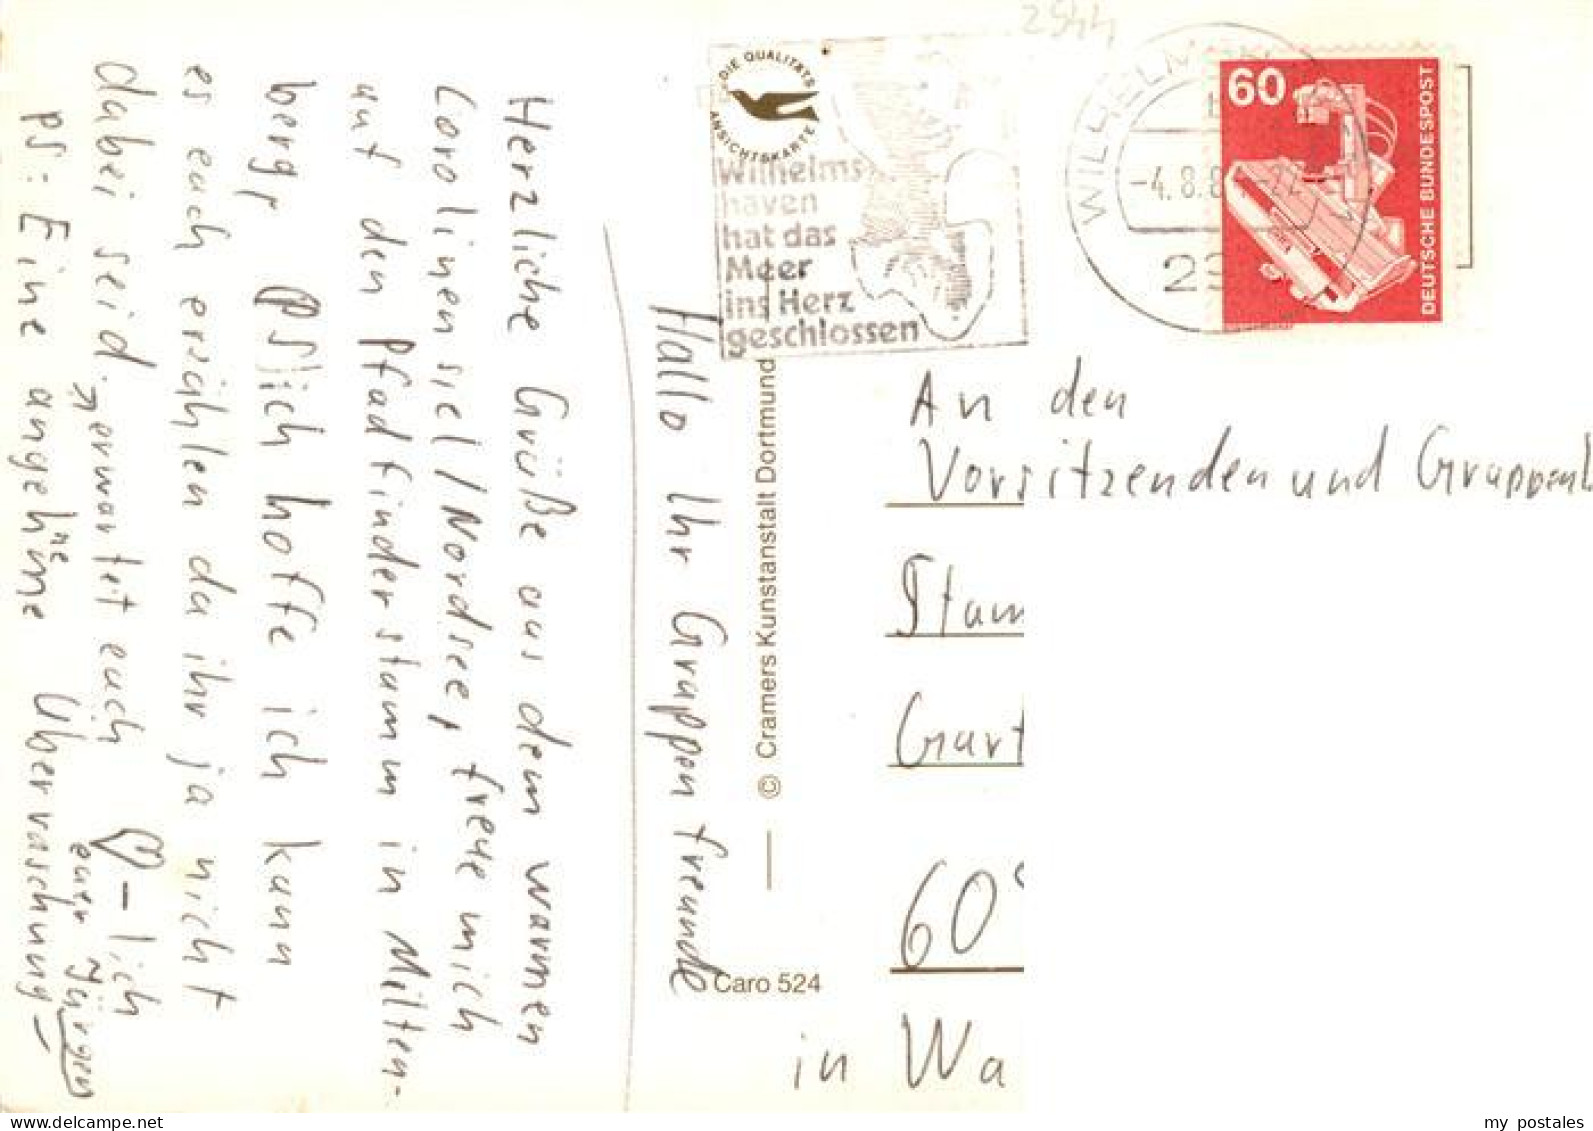 Hallo Ihr Gruppenfreunde
Herzliche Grüße aus dem warmen
Carolinensiel/Nordsee, freue mich
auf den Pfadfinderstamm in Milten-
berg, ich hoffe ich kann
es euch erzählen da ihr ja nicht
dabei seid. erwartet euch
♡-lich
euer Jürgen
PS: Eine angenehme Überraschung
DIE QUALITÄTS
ANSICHTSKARTE
Wilhelms
haven
hat das
Meer
ins Herz
geschlossen
2944
WILHELM
-4.8.8
60
DEUTSCHE BUNDESPOST
© Cramers Kunstanstalt Dortmund
Caro 524
An den
Vorsitzenden und Gruppenl
Stam
Gart
60
in Wa
my postales